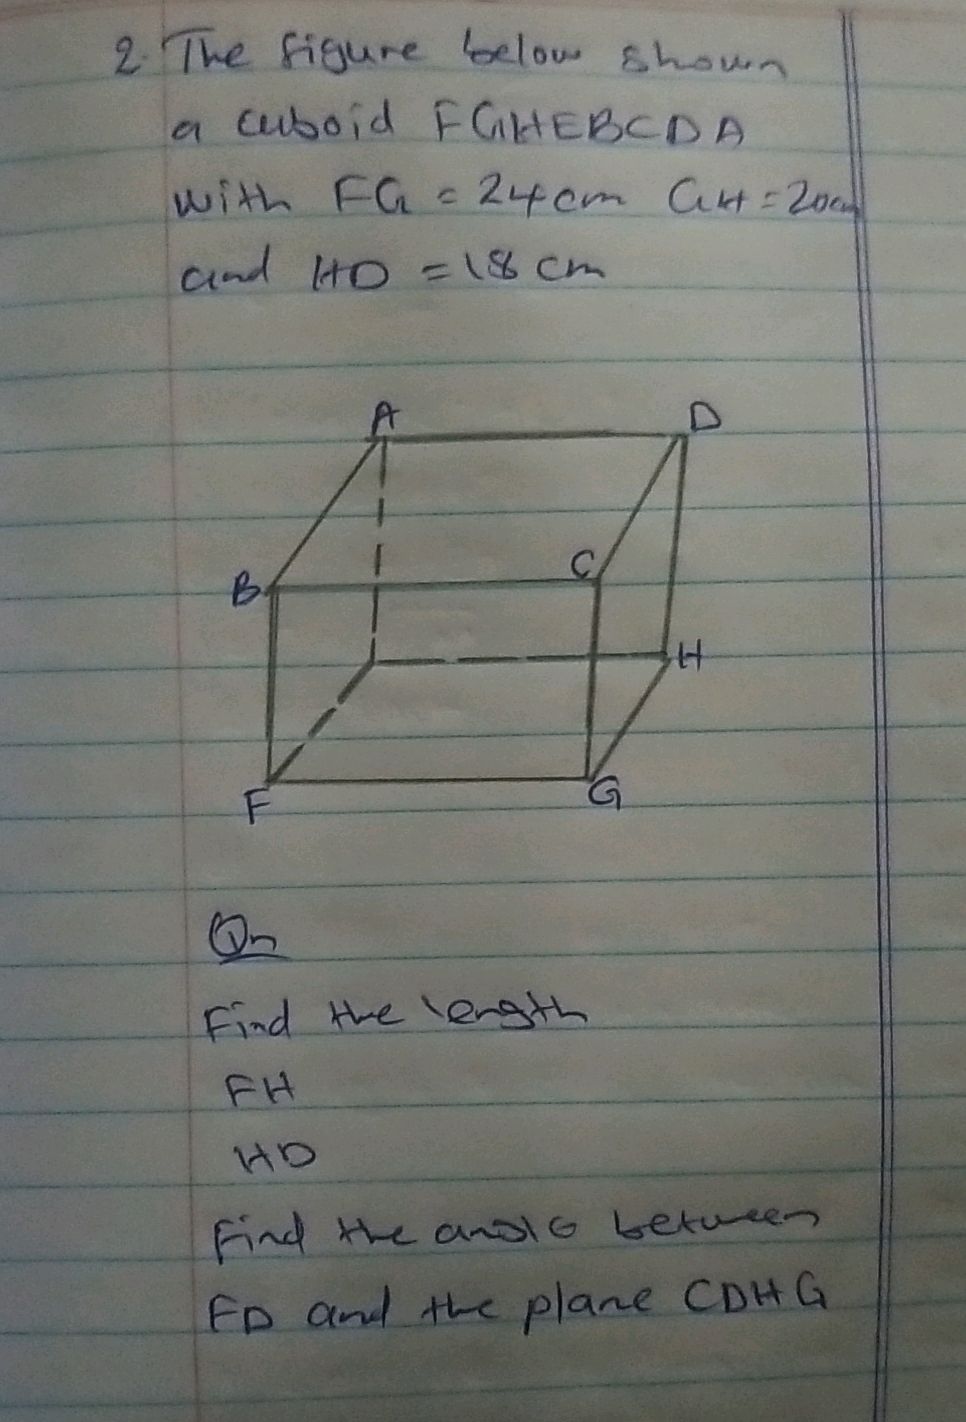 2. The figure below shown
a cuboid FGHEBCDA
with FG = 24cm GH = 20cm
and HD = 18 cm
A D
B C
H
F G
Qn
Find the length
FH
HD
Find the angle between
FD and the plane CDHG